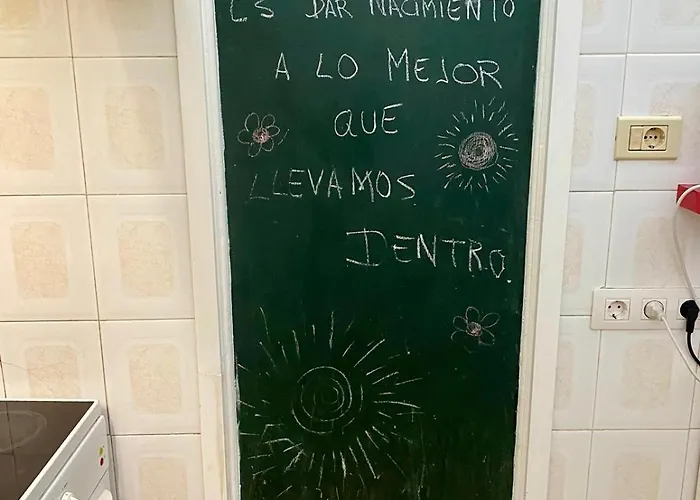 ES DAR NACIMIENTO
A LO MEJOR
QUE
LLEVAMOS
DENTRO.